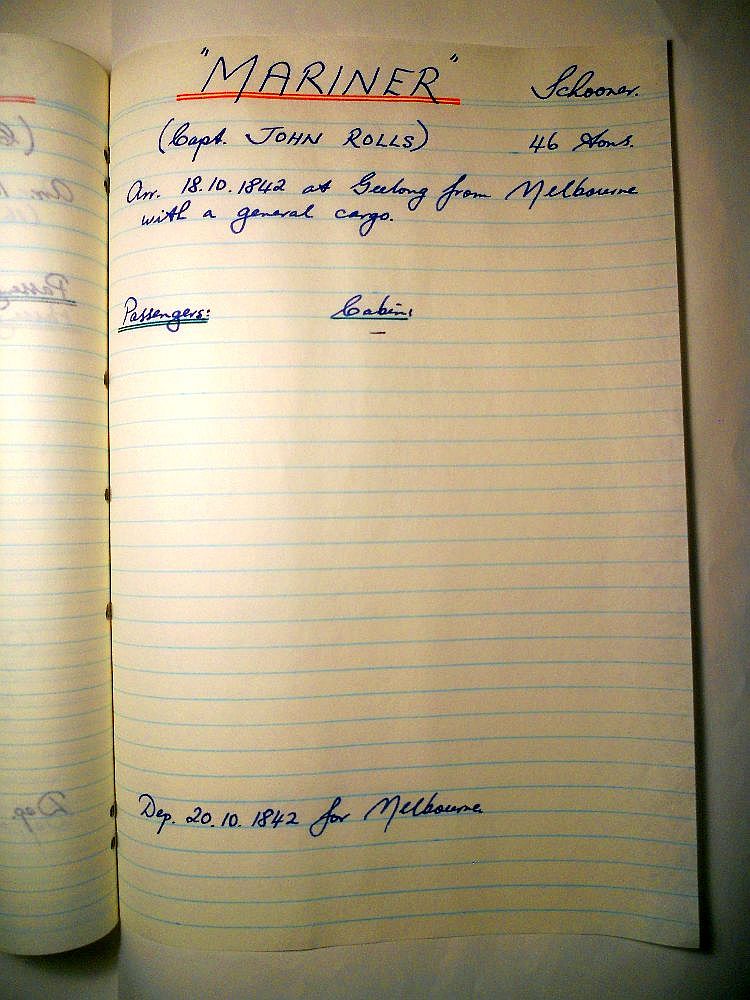 "MARINER" Schooner.
(Capt. JOHN ROLLS) 46 tons.
Arr. 18.10.1842 at Geelong from Melbourne
with a general cargo.
Passengers: Cabin:
—
Dep. 20.10.1842 for Melbourne.